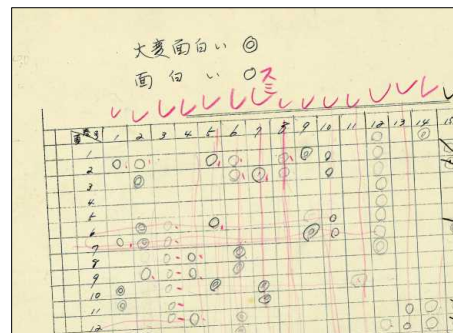 大変面白い ◎
面白い ○
1 2 3 4 5 6 7 8 9 10 11 12 13 14 15
1
2
3
4
5
6
7
8
9
10
11
12